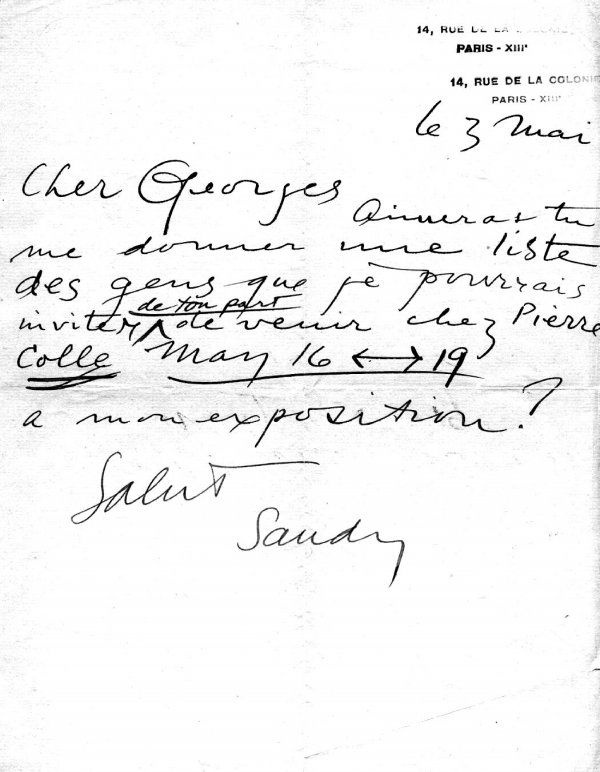 14, RUE DE LA COLONIE
PARIS - XIIIᵉ
14, RUE DE LA COLONIE
PARIS - XIIIᵉ
le 3 Mai
Cher Georges
Aimeras tu
me donner une liste
des gens que je pourrais
de ton part
inviter ^ de venir chez Pierre
Colle May 16 ⟷ 19
a mon exposition?
Salut
Sandy